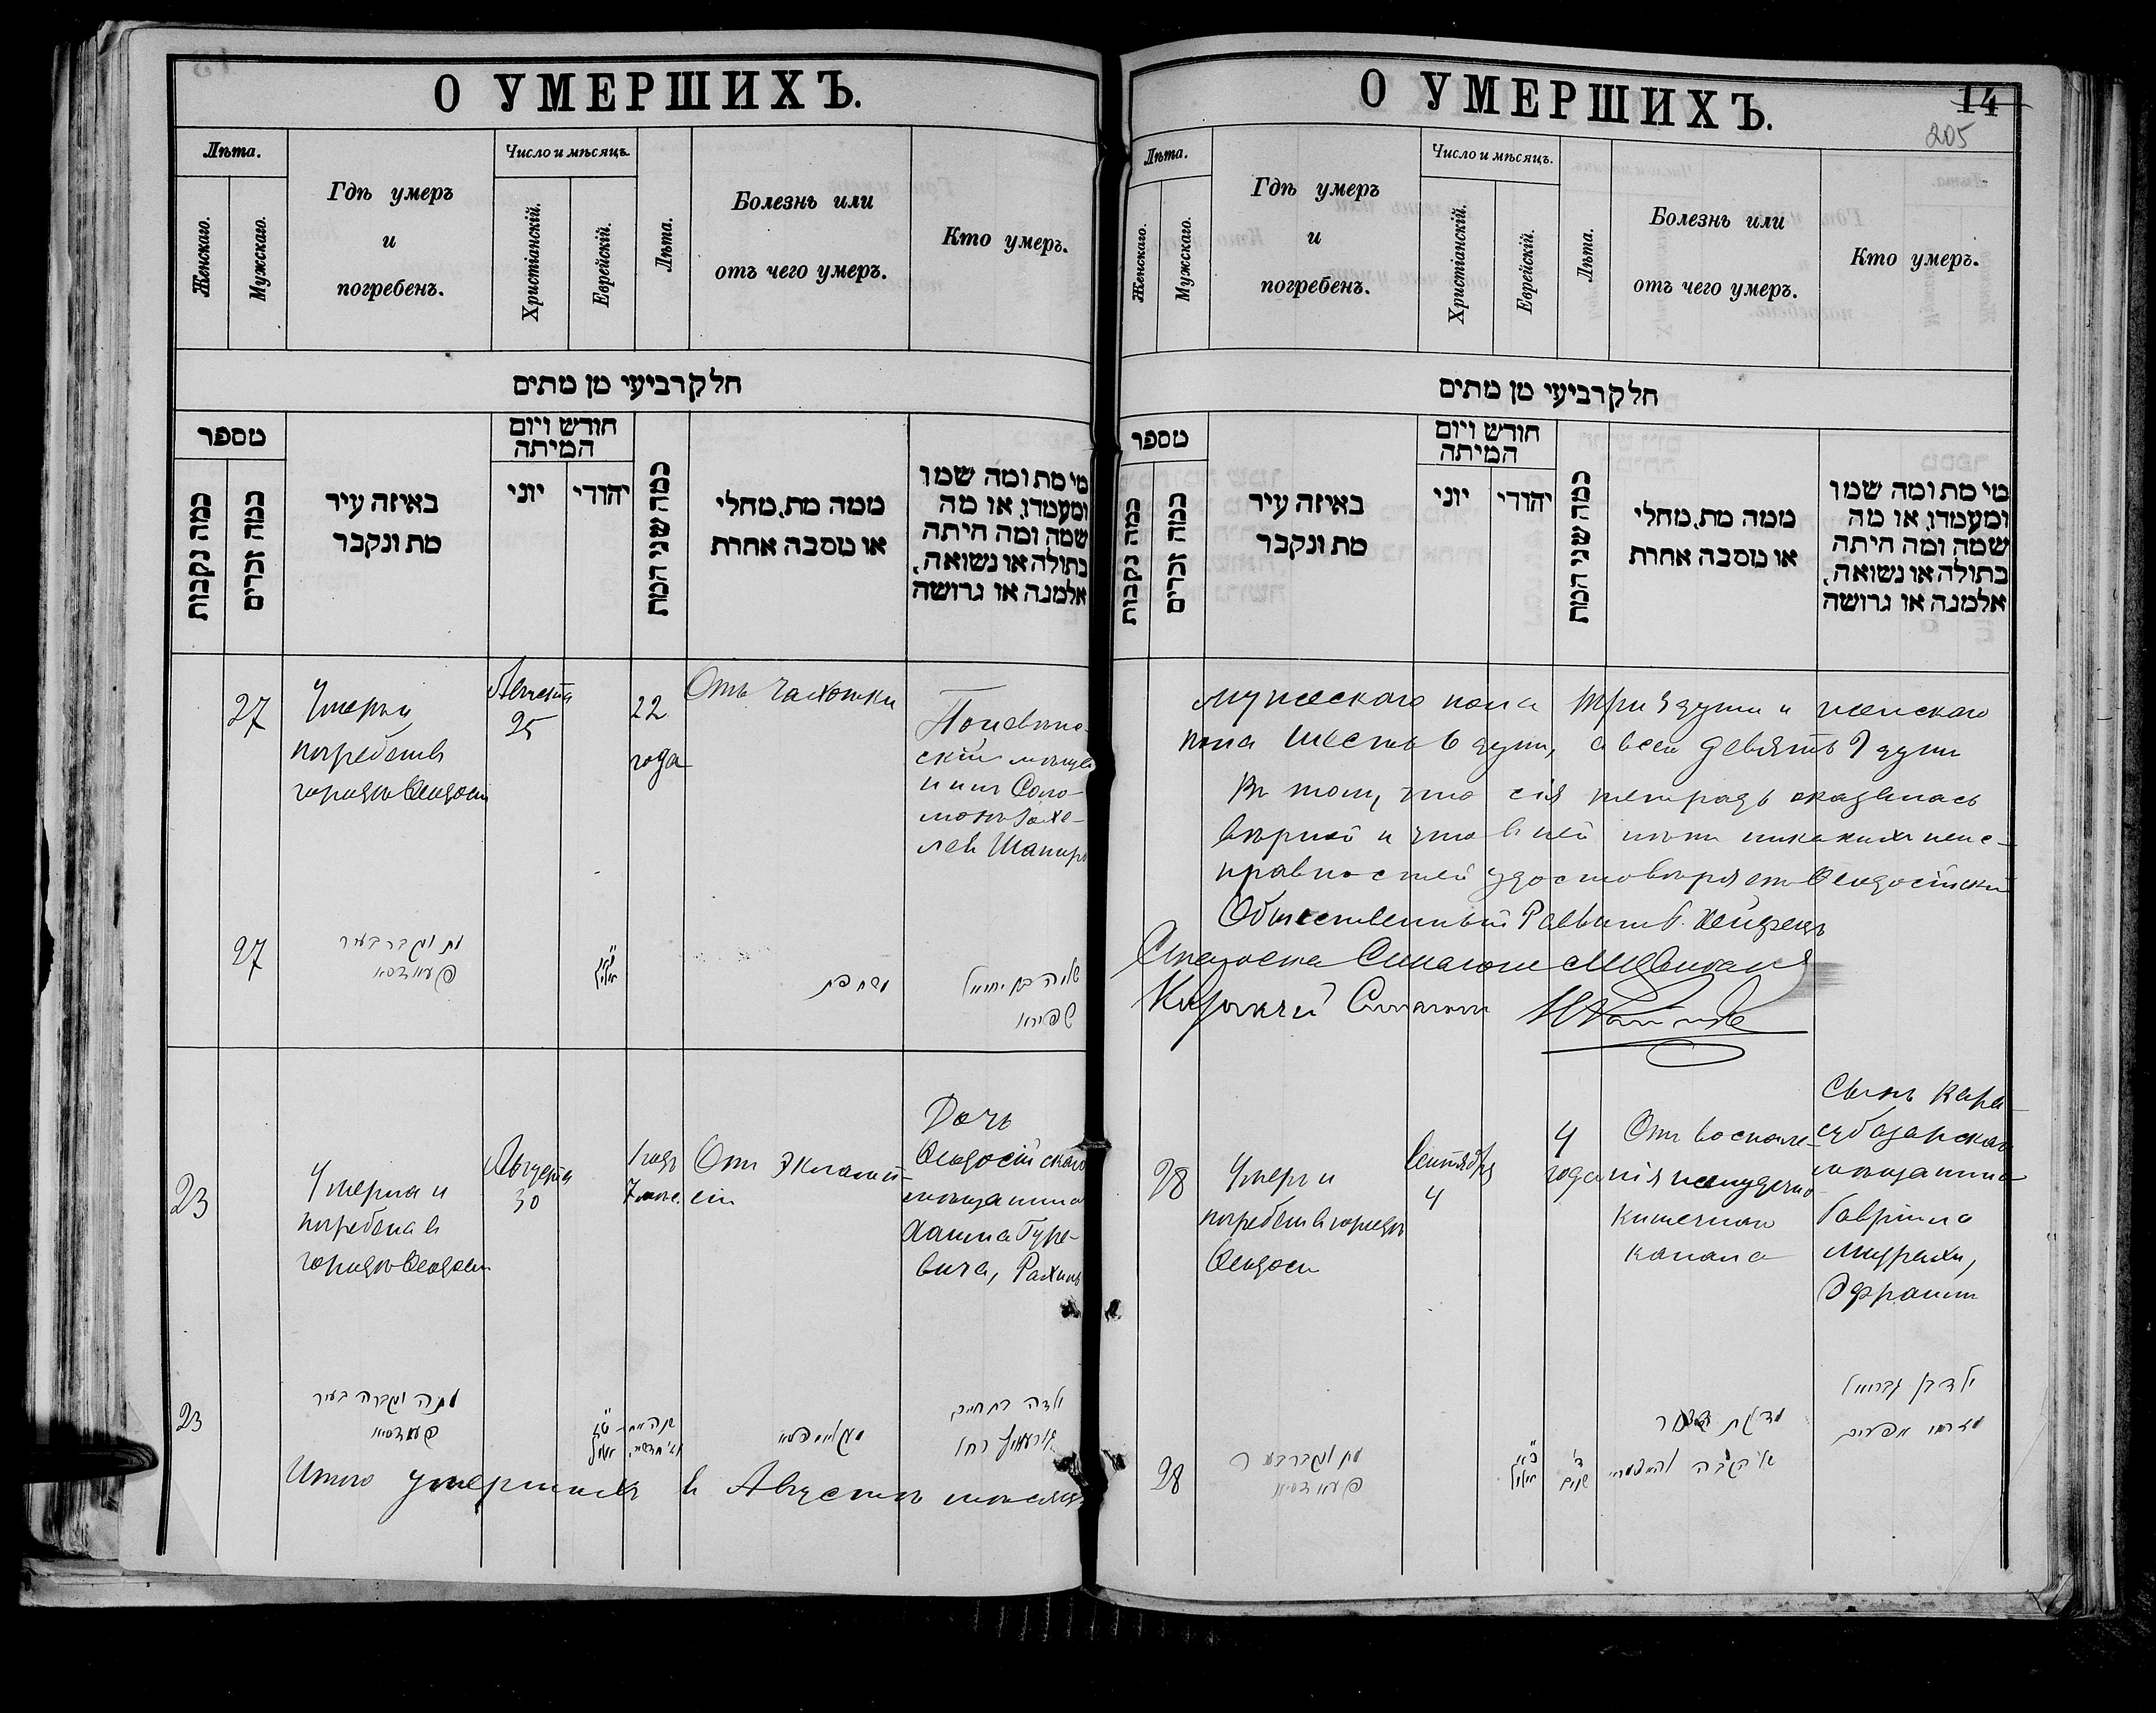 О УМЕРШИХЪ.
Лѣта.
Женскаго.
Мужскаго.
Гдѣ умеръ
и
погребенъ.
Число и мѣсяцъ.
Христіанскій.
Еврейскій.
Лѣта.
Болезнь или
отъ чего умеръ.
Кто умеръ.
חלק רביעי מן מתים
מספר
כמה נקבות
כמה זכרים
באיזה עיר
מת ונקבר
חודש ויום
המיתה
יוני
יהודי
כמה שני המת
ממה מת, מחלי
או מסבה אחרת
מי מת ומה שמו
ומעמדו, או מה
שמה ומה היתה
בתולה או נשואה,
אלמנה או גרושה
27
Умеръ и
погребенъ въ
городѣ Ѳеодосіи
Августа
25
22
года
Отъ чахотки
Поневѣж-
скій мѣща-
нинъ Соло-
монъ
Шапиро
27
מת ונקבר בעיר
פעאדסיא
שלמה בן יחיאל
שפירא
23
Умерла и
погребена въ
городѣ Ѳеодосіи
Августа
30
1 годъ
7 мѣс.
Отъ Эклампсіи
Дочь
Ѳеодосійскаго
мѣщанина
Хаима Гуре-
вича, Рахиль
23
מתה ונקברה בעיר
פעאדסיא
ילדה בת חיים
גורעוויץ רחל
Итого умершихъ въ Августѣ мѣсяцѣ
О УМЕРШИХЪ.
14
205
Лѣта.
Женскаго.
Мужскаго.
Гдѣ умеръ
и
погребенъ.
Число и мѣсяцъ.
Христіанскій.
Еврейскій.
Лѣта.
Болезнь или
отъ чего умеръ.
Кто умеръ.
חלק רביעי מן מתים
מספר
כמה נקבות
כמה זכרים
באיזה עיר
מת ונקבר
חודש ויום
המיתה
יוני
יהודי
כמה שני המת
ממה מת, מחלי
או מסבה אחרת
מי מת ומה שמו
ומעמדו, או מה
שמה ומה היתה
בתולה או נשואה,
אלמנה או גרושה
мужескаго пола три 3 души и женскаго
пола шесть 6 душъ, а всего девять 9 душъ
Въ томъ, что сія тетрадь оказалась
вѣрной и что въ ней нѣтъ никакихъ неис-
правностей удостовѣряетъ Ѳеодосійскій
Общественный Раввинъ
Староста Синагоги
Казначей Синагоги
28
Умеръ и
погребенъ въ городѣ
Ѳеодосіи
Сентября
4
4
года
Отъ воспале-
нія желудочно-
кишечнаго
канала
Сынъ Кара-
субазарскаго
мѣщанина
Гавріила
Мизрахи,
Эфраимъ
28
מת ונקבר בעיר
פעאדסיא
ד'
שנים
ילד בן גבריאל
מזרחי אפרים